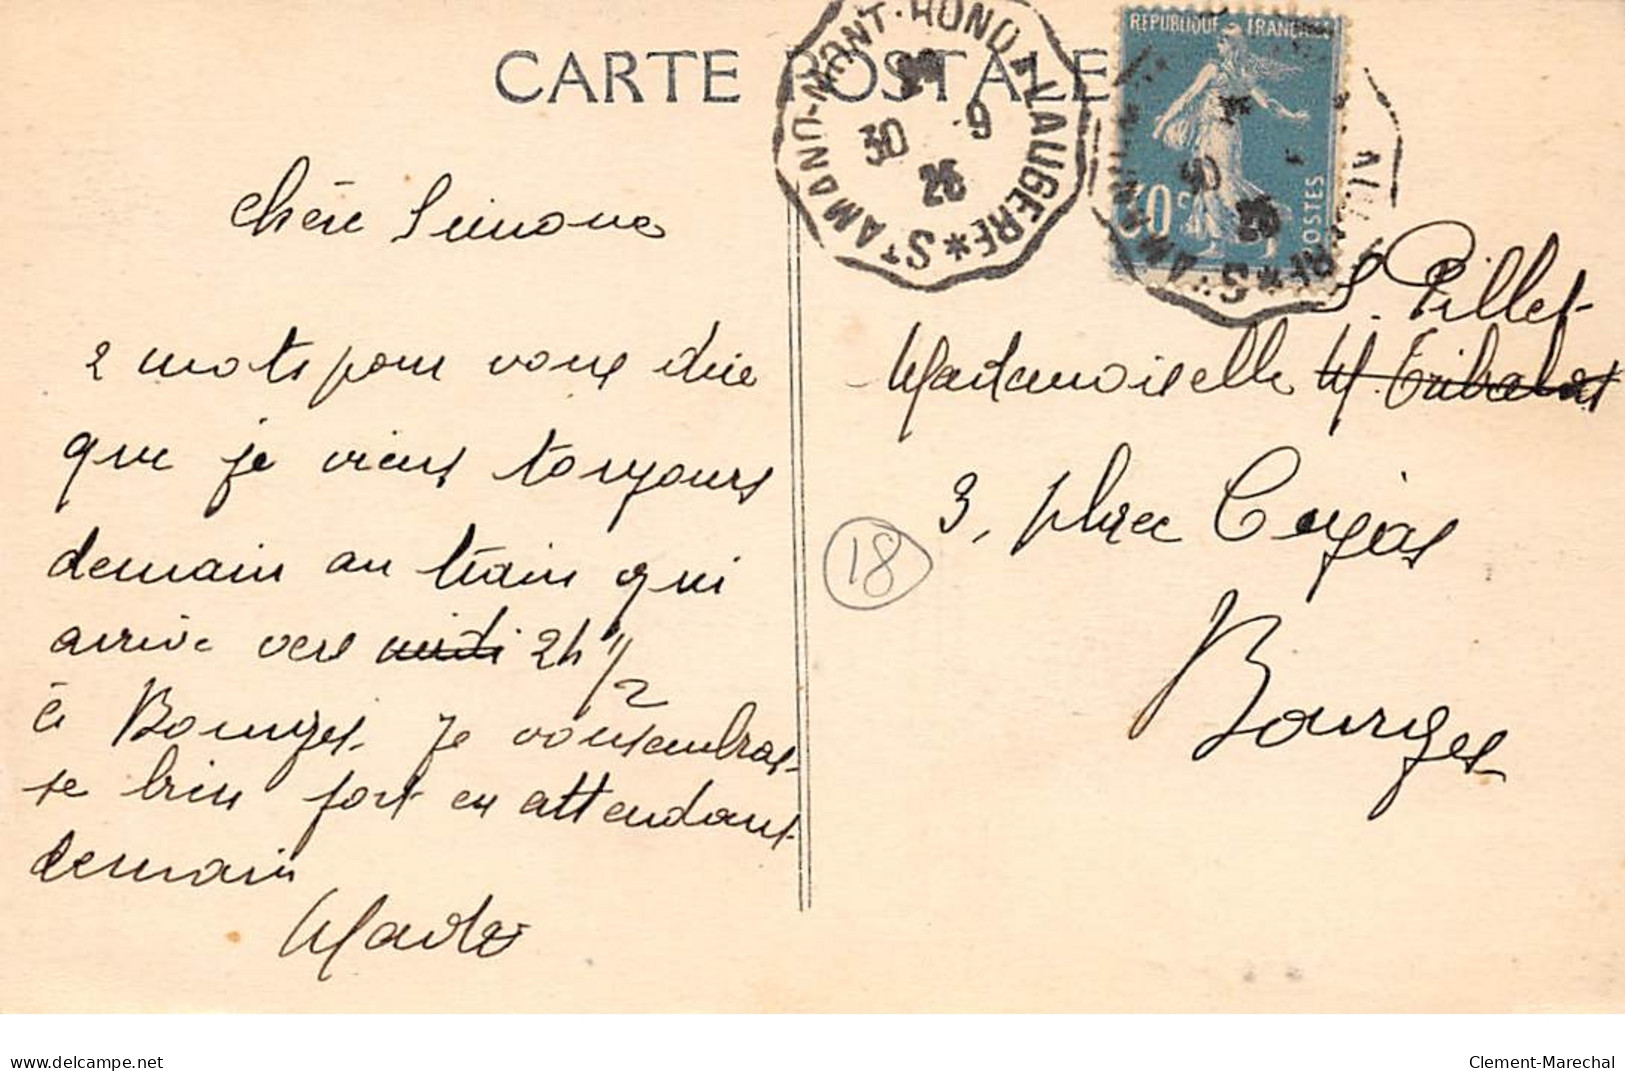 CARTE POSTALE
St AMAND-MONT-ROND A LAUGERE *
30 - 9
26
REPUBLIQUE FRANCAISE
30c
POSTES
Chère Simone
2 mots pour vous dire
que je viens toujours
demain au train qui
arrive vers midi 2h 1/2
à Bourges. Je vous embras-
se bien fort en attendant
demain
S. Pillet
Mademoiselle M.
3, place Cujas
Bourges
18
delcampe.net
Clement-Marechal